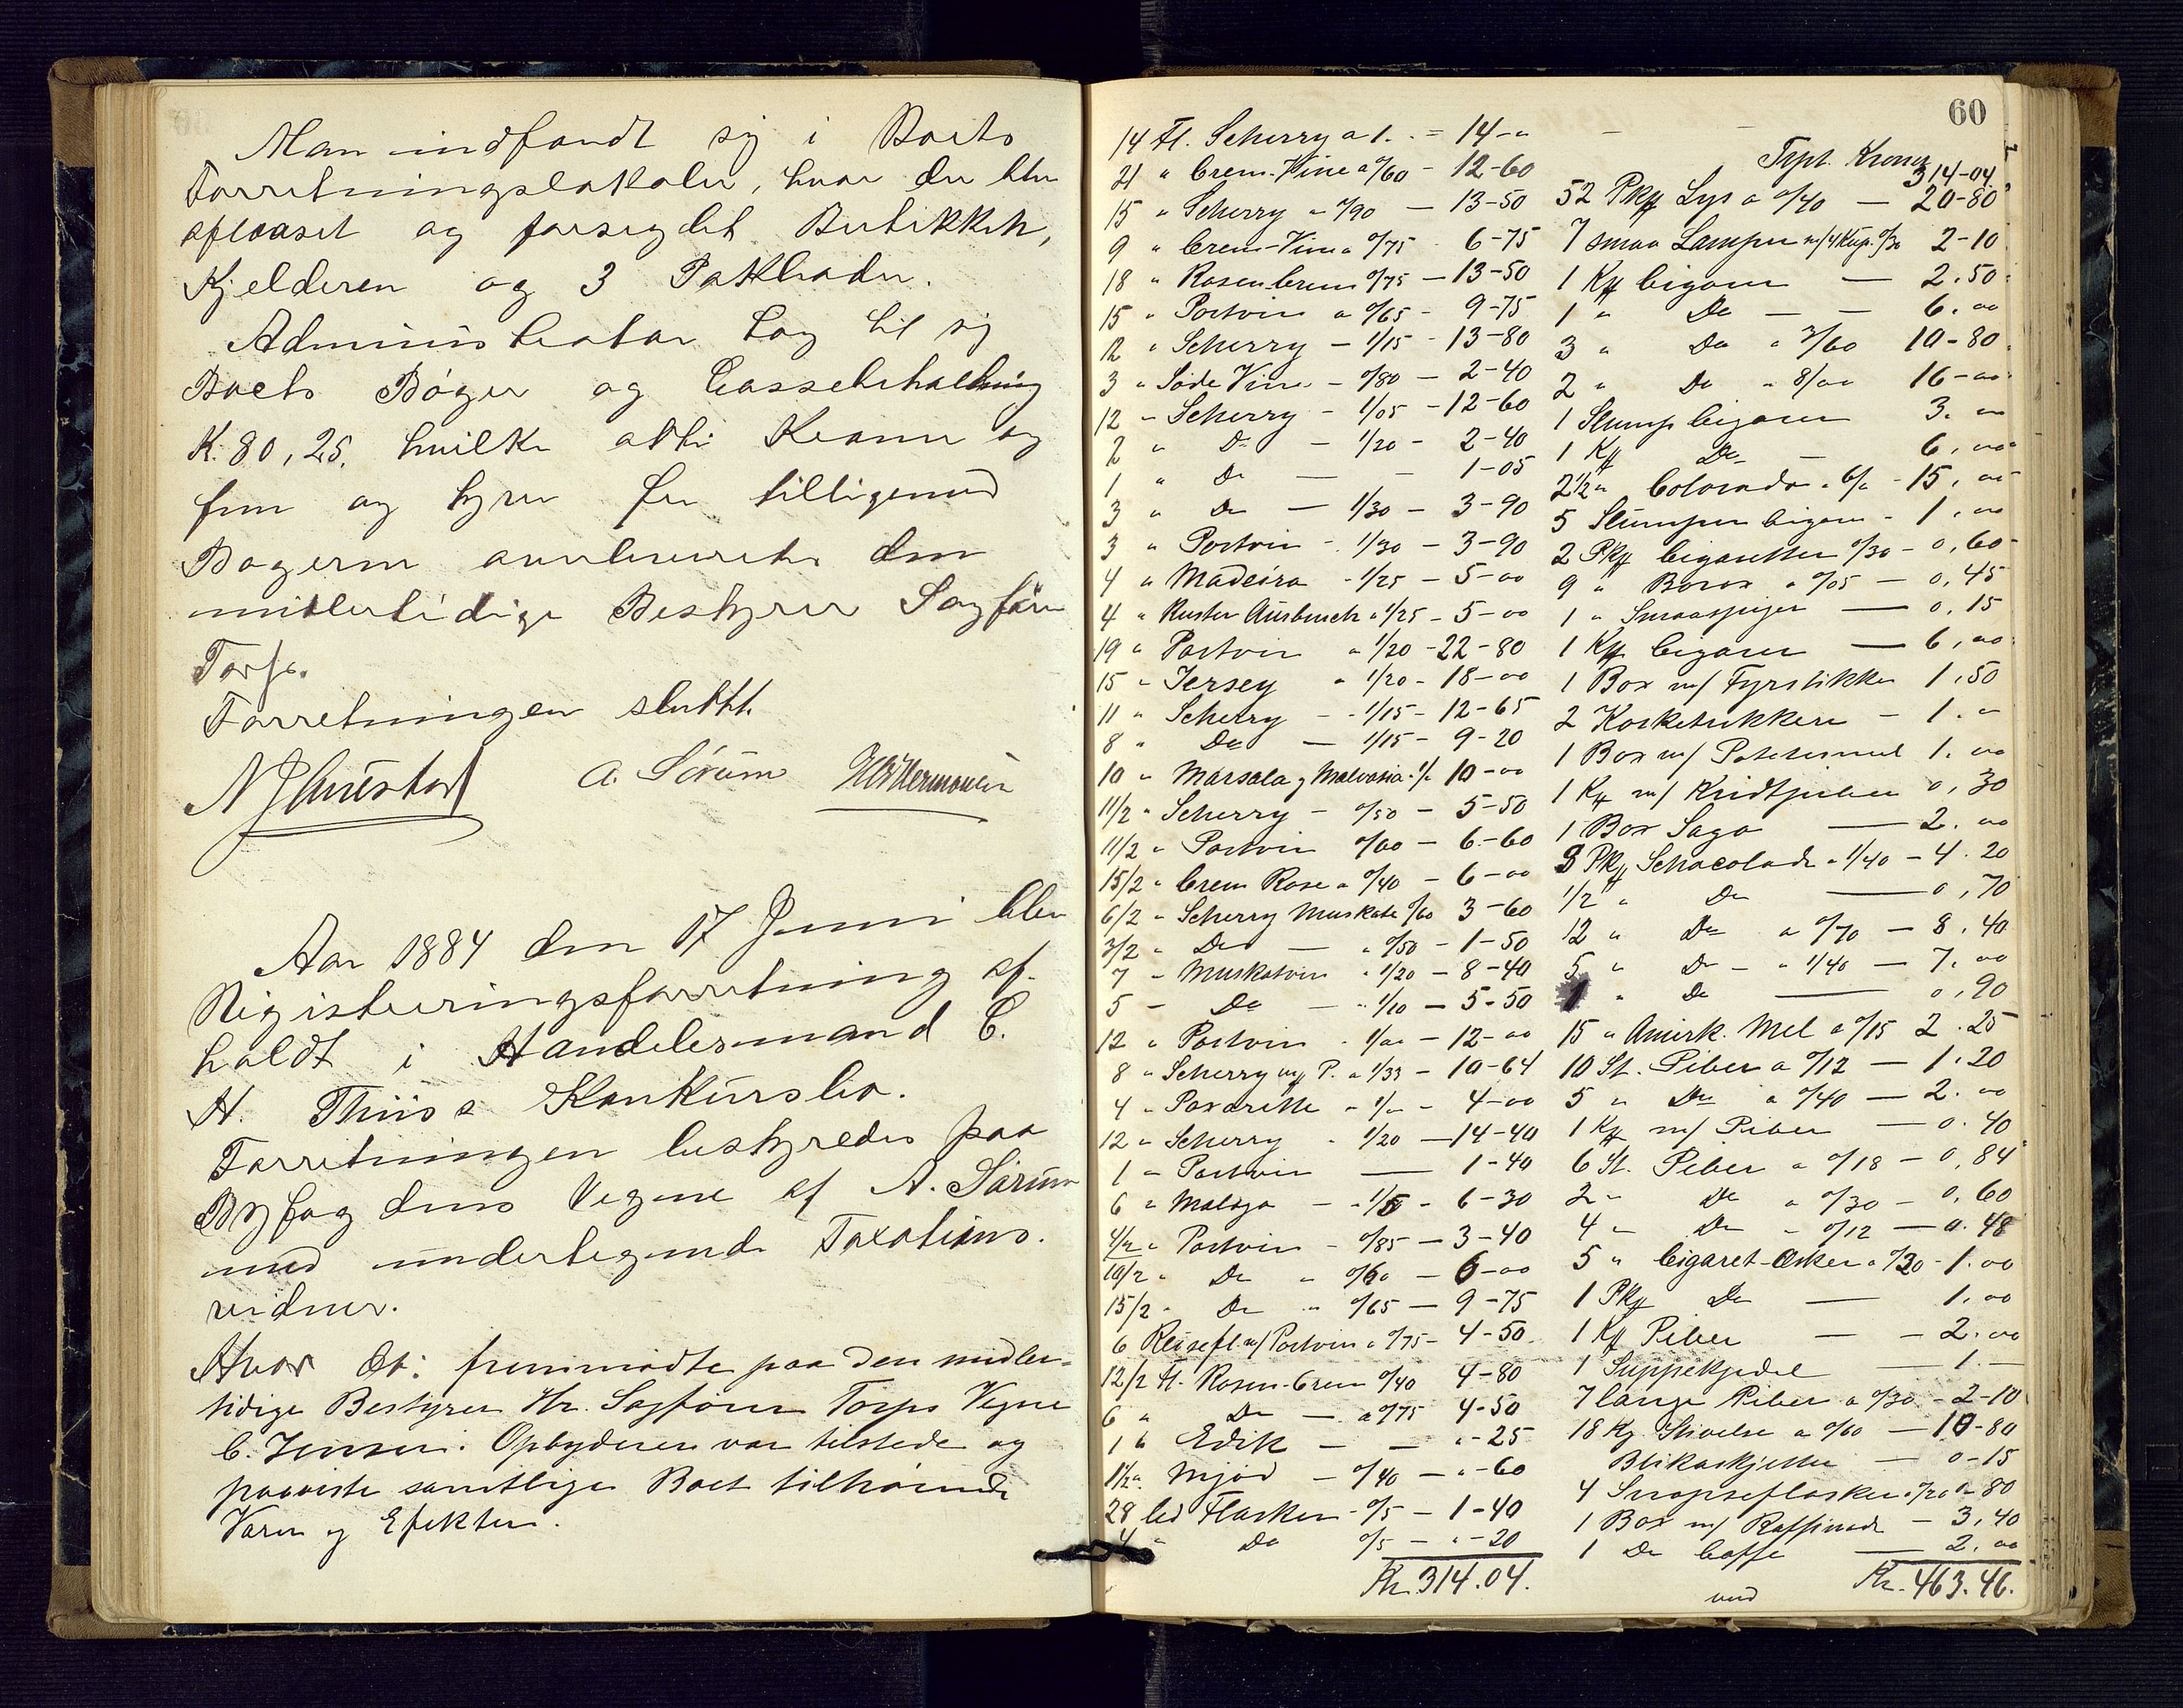 Man indfandt sig i Boets
Forretningslokaler, hvor der blev
aflaaset og forseglet Butikken,
Kjelderen og 3 Pakboder.
Administrator tog til sig
Boets Bøger og Cassebeholdning
K. 80,25. hvilke otti Kroner og
fem og tyve Øre tilligemed
Bøgerne overleveredes den
midlertidige Bestyrer Sagfører
Torp.
Forretningen sluttet.
A. Sørum
Aar 1884 den 17 Juni blev
Registreringsforretning af-
holdt i Handelsmand C.
H. Thiis's Konkursbo.
Forretningen bestyredes paa
Byfogdens Vegne af A. Sørum
med undertegnede Taxations-
vidner.
Hvor da: fremmødte paa den midler-
tidige Bestyrer Hr. Sagfører Torps Vegne
C. Jensen. Opbyderen var tilstede og
paaviste samtlige Boet tilhørende
Varer og Efekter.
60
14 Fl. Scherry a 1. = 14-"
21 " Crem-Vine a 0/60 - 12-60
15 " Scherry a 0/90 — 13-50
9 " Crem-Vin a 0/75 6-75
18 " Rosen-Crem 0/75 — 13-50
15 " Portvin a 0/65 - 9-75
12 " Scherry — 1/15 - 13-80
3 " Søde Vine - 0/80 — 2-40
12 " Scherry - 1/05 - 12-60
2 " Do — 1/20 - 2-40
1 " Do — - 1-05
3 " Do — 1/30 — 3-90
3 " Portvin - 1/30 — 3-90
4 " Madeira - 1/25 — 5-00
4 " Ruster Ausbruch a 1/25 - 5-00
19 " Portvin a 1/20 - 22-80
15 " Jersey a 1/20 - 18-00
11 " Scherry - 1/15 - 12-65
8 " Do — 1/15 - 9-20
10 " Marsala og Malvasia 1/" 10-00
11/2 " Scherry - 0/50 — 5-50
11/2 " Portvin 0/60 — 6-60
15/2 " Crem Rose a 0/40 — 6-00
6/2 " Scherry Muskate 0/60 3-60
3/2 " Do — a 0/50 - 1-50
7 " Muskatvin a 1/20 — 8-40
5 - Do — 1/10 — 5-50
12 " Portvin - 1/00 — 12-00
8 " Scherry P. a 1/33 - 10-64
4 " Paxarette - 1/" - 4-00
12 " Scherry - 1/20 — 14-40
1 " Portvin — 1-40
6 " Malaga — 1/5 - 6-30
4/2 " Portvin - 0/85 — 3-40
10/2 " Do " 0/60 — 6-00
15/2 " Do " 0/65 — 9-75
6 Reisefl m/ Portvin a 0/75 - 4-50
12/2 Fl. Rosen-Crem 0/40 4-80
6 " Do — a 0/75 4-50
1 " Edik — — "-25
1 1/2 " Mjød — 0/40 — "-60
28 led Flasker - 0/5 — 1-40
4 " Do 0/5 — "-20
Kr. 314.04.
Trpt. Kroner 314-04
52 Pkg Lys a 0/40 — 20-80
7 smaa Lamper m/ 4 Kup. 0/30 2-10
1 Kg Cigarer — 2.50
1 " Do — — 6.00
3 " Do a 3/60 10-80
2 " Do a 8/00 16-00
1 Slump Cigarer 3.00
1 Kg Do — 6,00
2 1/2 " Colorado a 6/" - 15,00
5 Slumper Cigarer - 1,00
2 Pkg Cigaretter 0/30 - 0,60
9 " Borax a 0/05 — 0,45
1 " Smaapiger — 0,15
1 Kg Cigarer — 6,00
1 Box m/ Fyrstikker 1,50
2 Korketrækkere — 1."
1 Box m/ Potetesmel 1.00
1 Kg m/ Kridtpiber 0,30
1 Box Sago — 2.00
3 Pkg Schocolade a 1/40 - 4.20
1/2 " Do — 0,70
12 " Do a 0/70 — 8.40
5 " Do - a 1/40 — 7.00
1 " Do — 0,90
15 " Amerk. Mel a 0/15 2.25
10 St. Piber a 0/12 — 1.20
5 " Do a 0/40 — 2.00
1 Kg m/ Piber — 0.40
6 St. Piber a 0/18 — 0,84
2 " Do a 0/30 — 0,60
4 " Do - 0/12 — 0.48
5 " Cigaret-Æsker a 0/20 - 1.00
1 Pkg Do — 1,00
1 Kg Piber — - 2.00
1 Suppekjedel — 1.—
7 lange Piber a 0/30 - 2-10
18 Kg. Stivelse a 0/60 — 10-80
Blikæskjetter — 0-15
4 Snapseflasker a 0/20 0-80
1 Box m/ Raffinade — 3,40
1 Do Caffe — 2.00
Kr. 463.46.